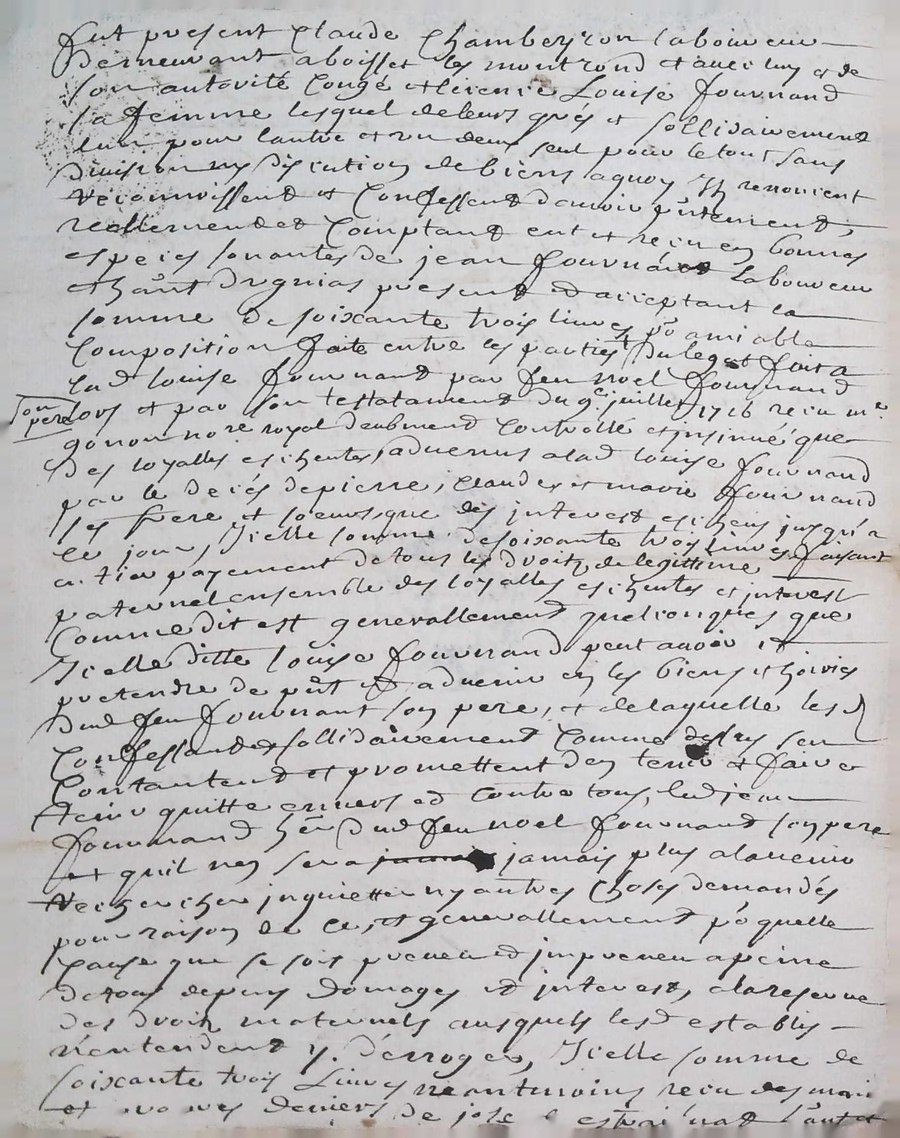 fut present Claude Chambeyron laboureur
demeurant a boisset les montrond et avec luy et de
son autorité Congé et licence Louise fournand
sa femme lesquel de leurs grés et sollidairement
lun pour lautre et un deux seul pour le tout sans
division ny discution de biens a quoy Ils renoncent
reconnoissent et Confessent davoir pntement,
reellement et Comptant eut et recu en bonnes
especes sonantes de jean fournand Laboureur
present et acceptant la
somme de soixante trois livres po amiable
Composition faite entre les parties du legat fait a
lad louise fournand par feu noel fournand
son
pere
lors et par son testatament du 9e juillet 1716 recu me
gonon nore royal deubment Controllé et insinué que
des loyalles escheutes advenus a lad louise fournand
par le decés de pierre, claude et marie fournand
ses frere et soeurs que des interest escheus jusqu'a
ce jour, Icelle somme de soixante trois livres faisant
payement de tous les droits de legittime
paternel ensemble des loyalles escheutes et interest
Comme dit est generallement quelconques que
Icelle ditte louise fournand peut avoir et
pretendre de pnt et advenir en les biens et hoiries
dud feu fournant son pere, et de laquelle les d
Confessant sollidairement Comme
Contantent et promettent den tenir et faire
tenir quitte envers et contre tous, led jean
fournand her dud feu noel fournand son pere
et quil ne sera jamais jamais plus a lavenir
rechercher inquietter ny autres choses demandés
pour raison de ce, et generallement po quelle
cause que se soit preveu et impreveu a peine
de tous depens domages et interest, a la reserve
des droits maternels ausquels lesd establis
n'entendent y derroger, Icelle somme de
soixante trois Livres neantmoins recu des mains
et deniers de